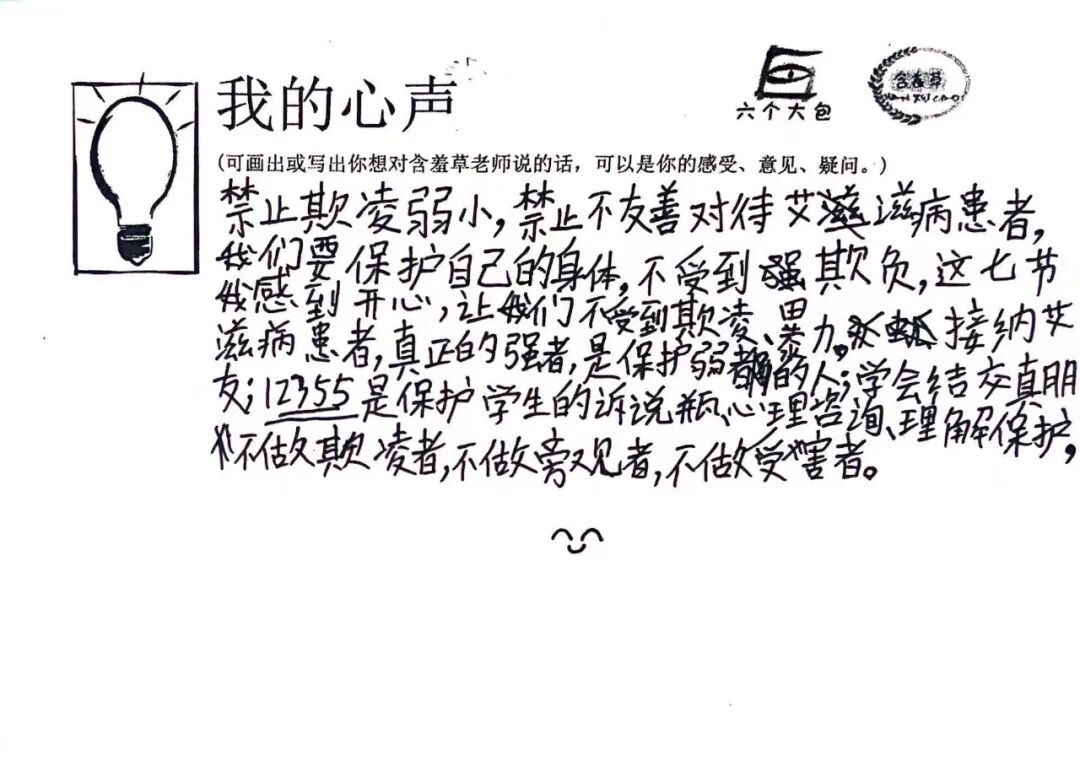 我的心声
六个大包
含羞草
HAN XIU CAO
(可画出或写出你想对含羞草老师说的话，可以是你的感受、意见、疑问。)
禁止欺凌弱小，禁止不友善对待艾滋病患者，
我们要保护自己的身体，不受到欺负，这七节
我感到开心，让我们不受到欺凌、暴力。接纳艾
滋病患者，真正的强者，是保护弱的人；学会结交真朋
友；12355是保护学生的诉说瓶、心理咨询、理解保护，
不做欺凌者，不做旁观者，不做受害者。